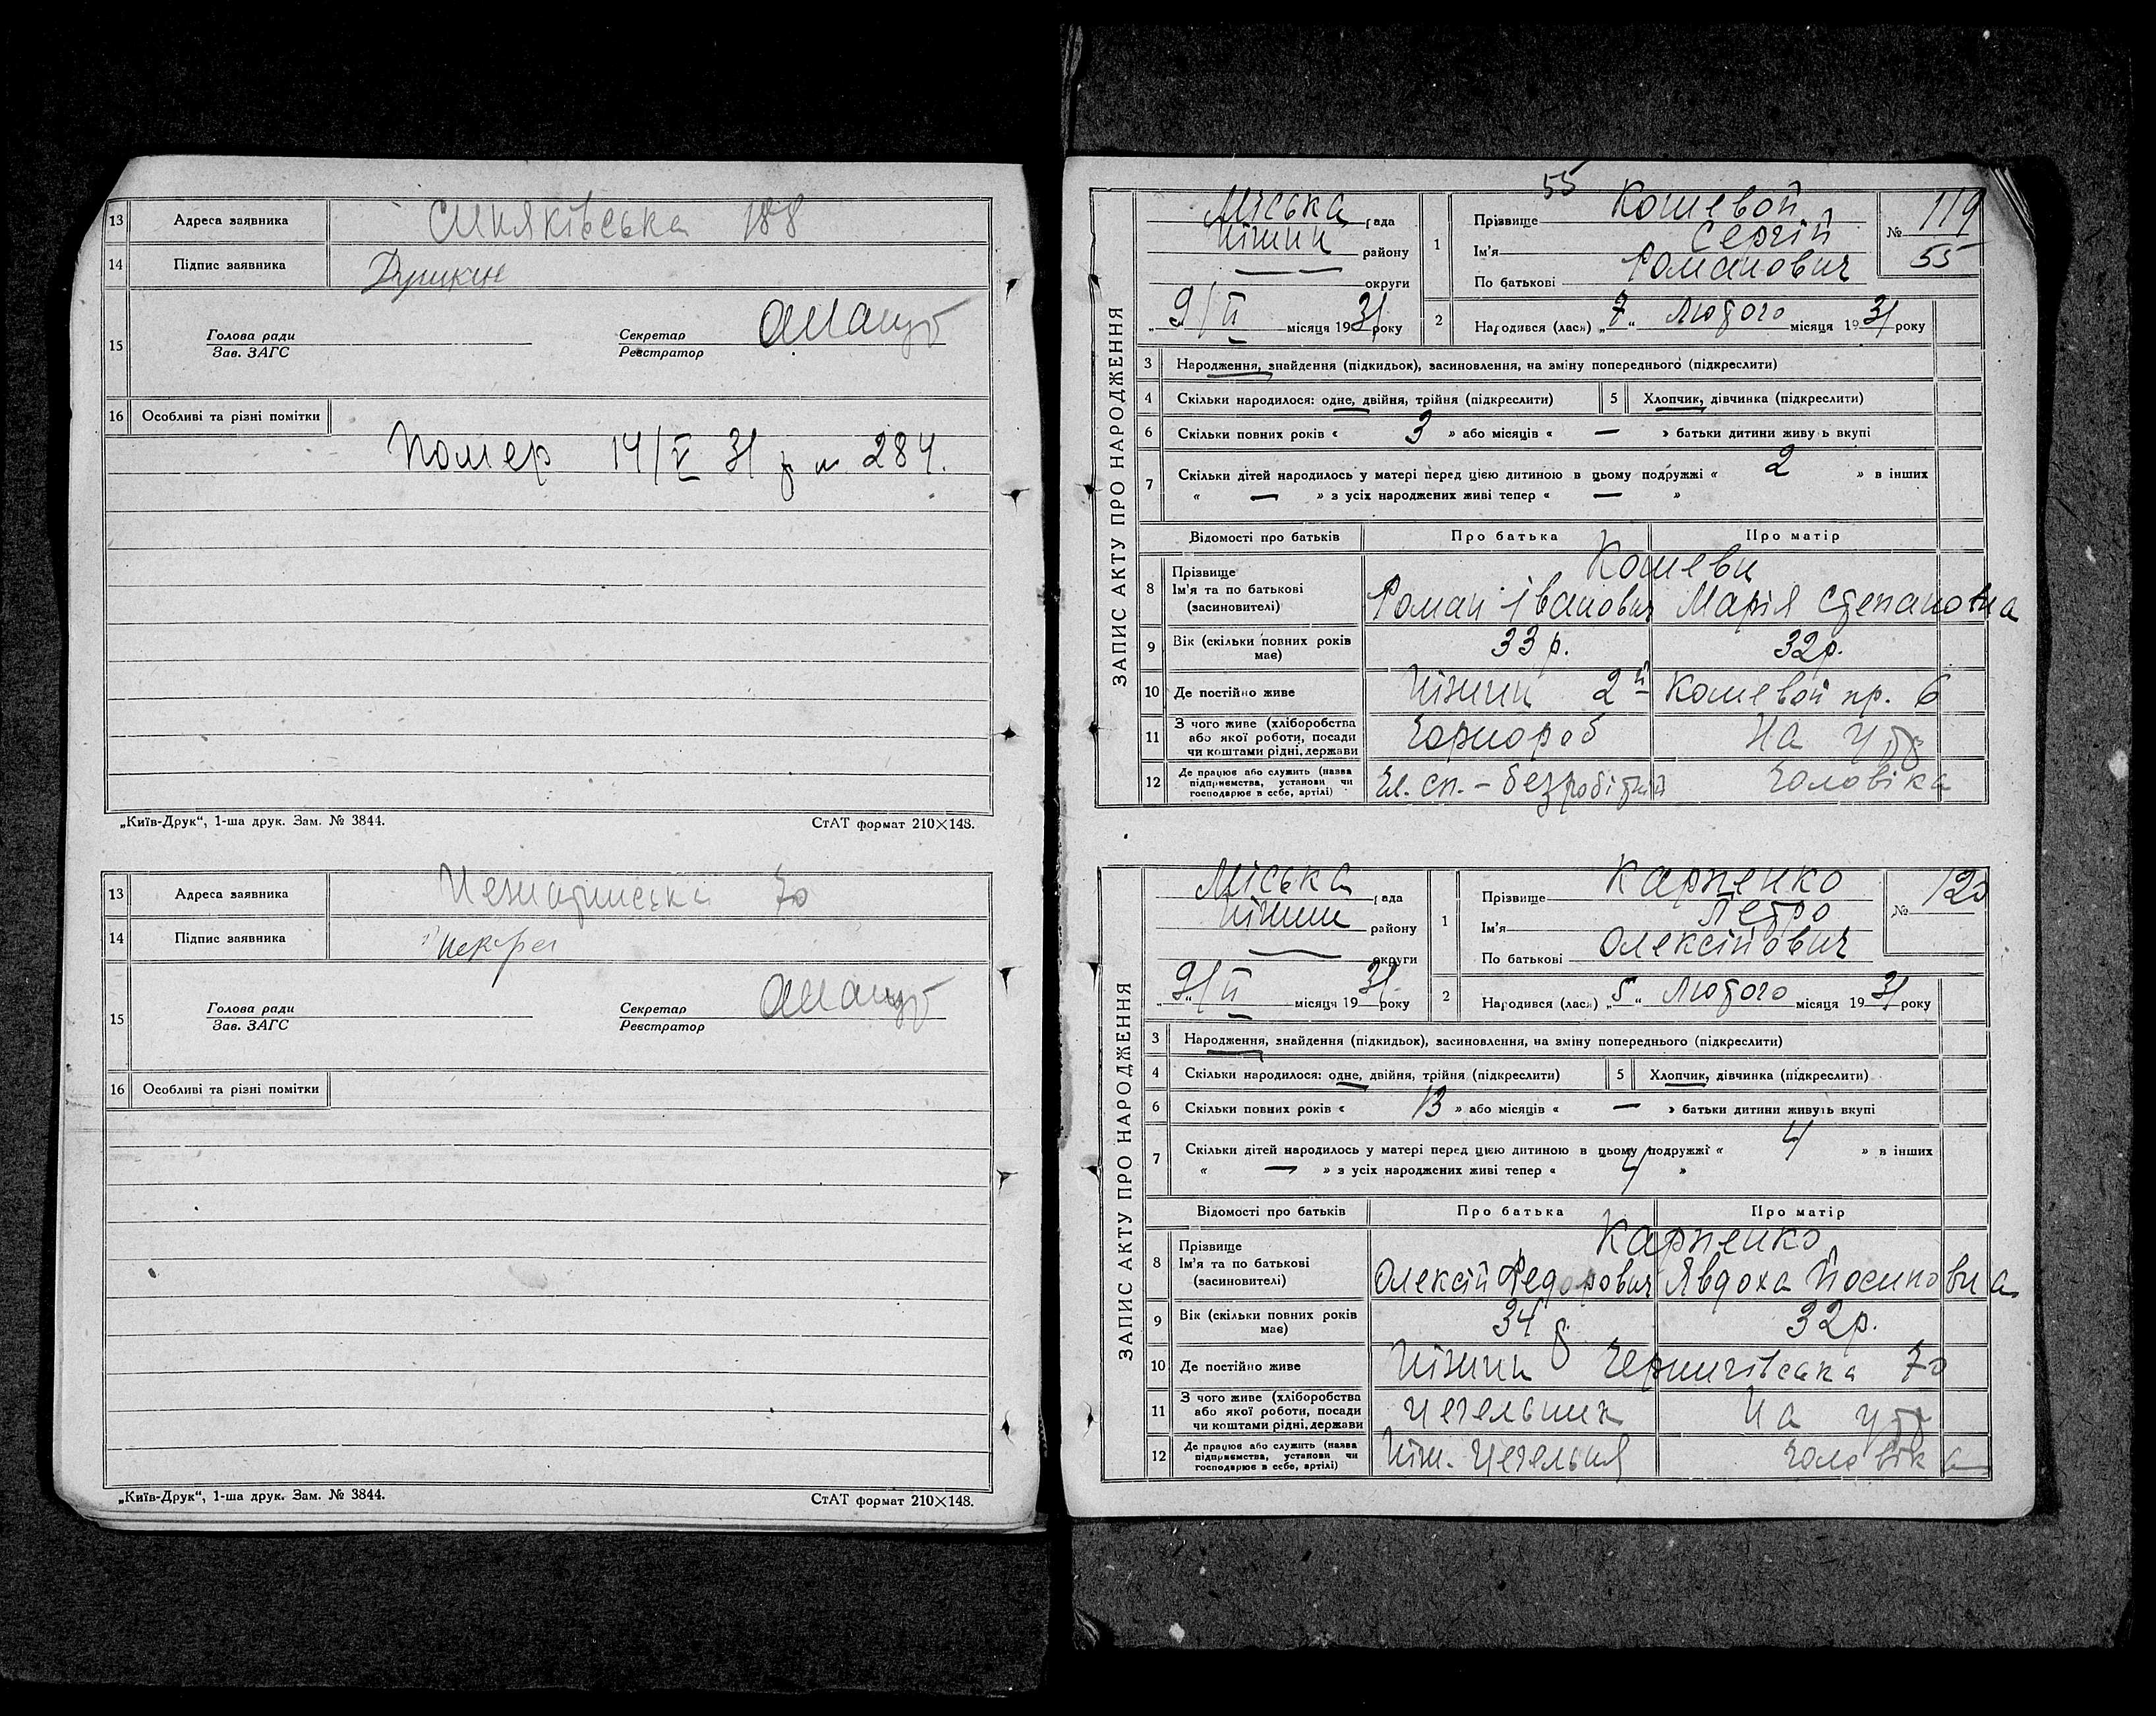 13 Адреса заявника 188
14 Підпис заявника
15 Голова ради
Зав. ЗАГС
Секретар
Реєстратор
16 Особливі та різні помітки
Помер 14/V 31 р № 284.
„Київ-Друк“, 1-ша друк. Зам. № 3844. СтАТ формат 210×148.
13 Адреса заявника 70
14 Підпис заявника
15 Голова ради
Зав. ЗАГС
Секретар
Реєстратор
16 Особливі та різні помітки
„Київ-Друк“, 1-ша друк. Зам. № 3844. СтАТ формат 210×148.
ЗАПИС АКТУ ПРО НАРОДЖЕННЯ
55
Міська рада
Ніжин району
округи
„9/II місяця 1931 року
1 Прізвище Кошевой
Ім'я Сергій
По батькові Романович
№ 119
55
2 Народився (лась) „7“ Лютого місяця 1931 року
3 Народження, знайдення (підкидьок), засиновлення, на зміну попереднього (підкреслити)
4 Скільки народилося: одне, двійня, трійня (підкреслити) 5 Хлопчик, дівчинка (підкреслити)
6 Скільки повних років « 3 » або місяців « — » батьки дитини живуть вкупі
7 Скільки дітей народилось у матері перед цією дитиною в цьому подружжі « 2 » в інших
« — » з усіх народжених живі тепер « — »
Відомості про батьків Про батька Про матір
8 Прізвище Кошеви
Ім'я та по батькові Роман Іванович Марія Степановна
(засиновителі)
9 Вік (скільки повних років має) 33 р. 32 р.
10 Де постійно живе Ніжин 2й Кошевой пр. 6
11 З чого живе (хліборобства Чорнороб На утр
або якої роботи, посади
чи коштами рідні, держави
12 Де працює або служить (назва Чл. сп. – безробітний чоловіка
підприємства, установи чи
господарює в себе, артілі)
ЗАПИС АКТУ ПРО НАРОДЖЕННЯ
Міська рада
Ніжин району
округи
„9/II місяця 1931 року
1 Прізвище Карпенко
Ім'я Петро
По батькові Олексійович
№ 120
2 Народився (лась) „5“ Лютого місяця 1931 року
3 Народження, знайдення (підкидьок), засиновлення, на зміну попереднього (підкреслити)
4 Скільки народилося: одне, двійня, трійня (підкреслити) 5 Хлопчик, дівчинка (підкреслити)
6 Скільки повних років « 13 » або місяців « — » батьки дитини живуть вкупі
7 Скільки дітей народилось у матері перед цією дитиною в цьому подружжі « 4 » в інших
« — » з усіх народжених живі тепер « 4 »
Відомості про батьків Про батька Про матір
8 Прізвище Карпенко
Ім'я та по батькові Олексій Федорович Явдоха Йосиповна
(засиновителі)
9 Вік (скільки повних років має) 34 р. 32 р.
10 Де постійно живе Ніжин Чернигівська 70
11 З чого живе (хліборобства Цегельник На утр
або якої роботи, посади
чи коштами рідні, держави
12 Де працює або служить (назва Ніж. Цегельня чоловіка
підприємства, установи чи
господарює в себе, артілі)